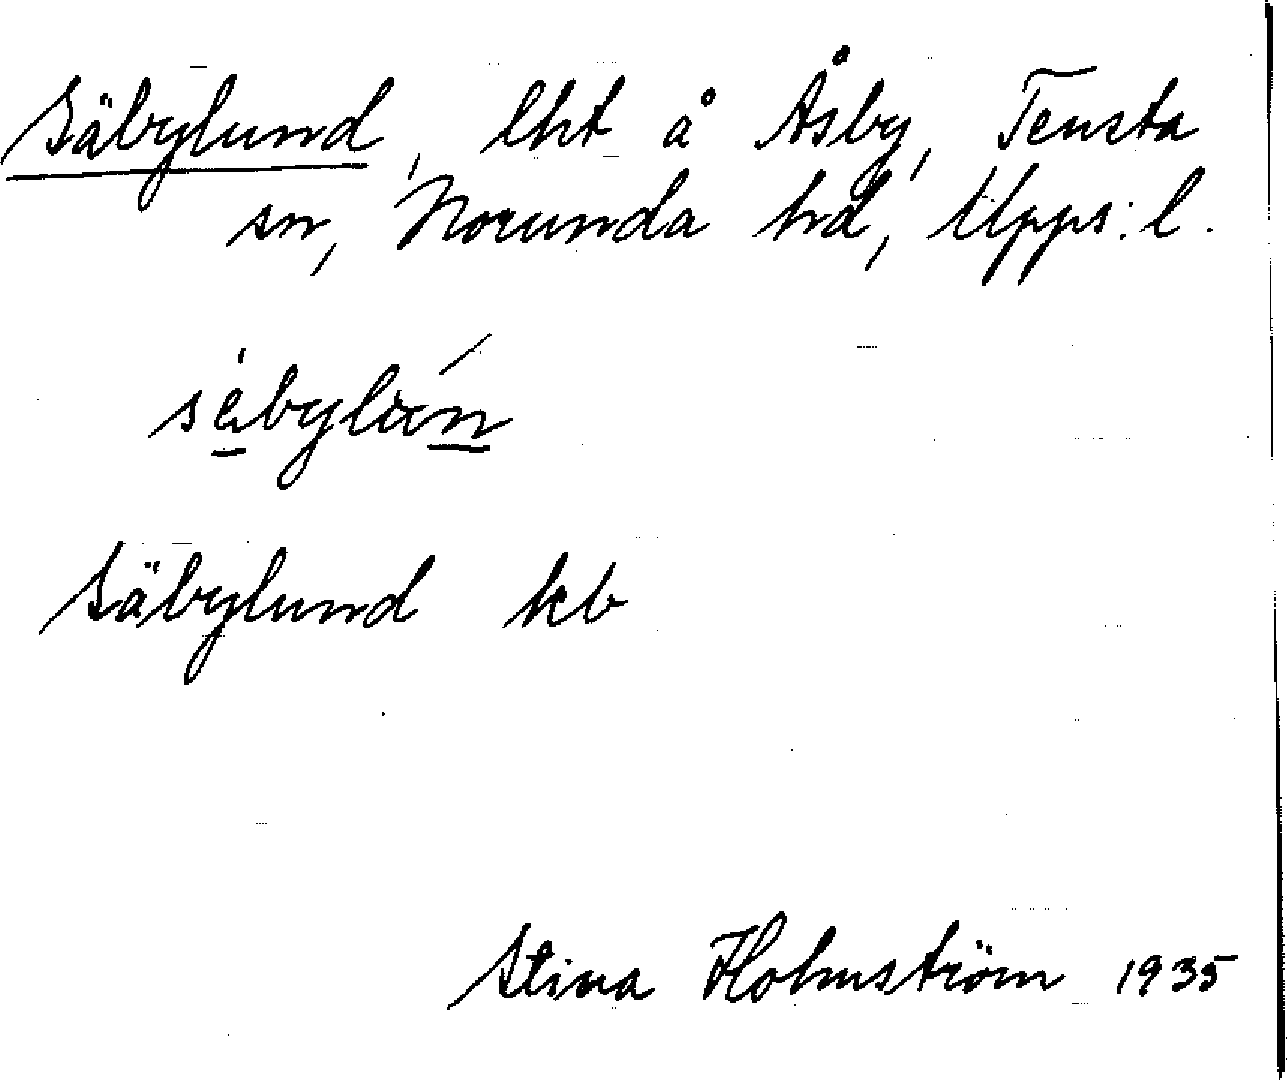 Säbylund, lht å Åsby, Tensta
sn, Norunda hd, Upps. l.
Säbylund kb
Stina Holmström 1935